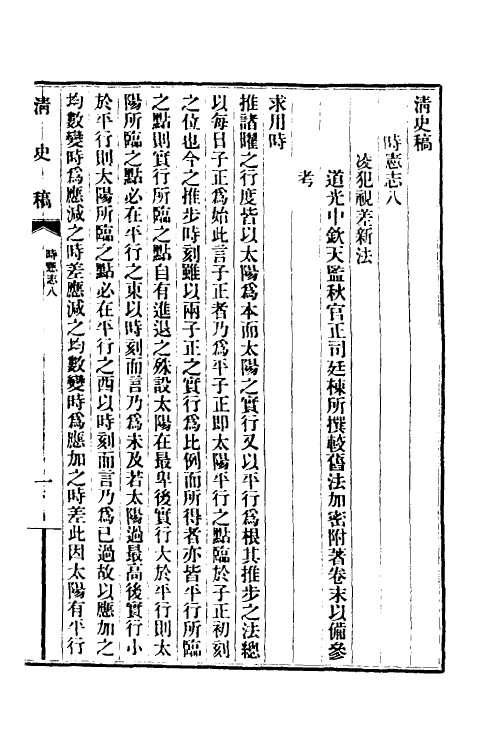 清史稿
時憲志八
凌犯視差新法
道光中欽天監秋官正司廷棟所撰較舊法加密附著卷末以備參
考
求用時
推諸曜之行度皆以太陽爲本而太陽之實行又以平行爲根其推步之法總
以每日子正爲始此言子正者乃爲平子正即太陽平行之點臨於子正初刻
之位也今之推步時刻雖以兩子正之實行爲比例而所得者亦皆平行所臨
之點則實行所臨之點自有進退之殊設太陽在最卑後實行大於平行則太
陽所臨之點必在平行之東以時刻而言乃爲未及若太陽過最高後實行小
於平行則太陽所臨之點必在平行之西以時刻而言乃爲已過故以應加之
均數變時爲應減之時差應減之均數變時爲應加之時差此因太陽有平行
清史稿
時憲志八
一